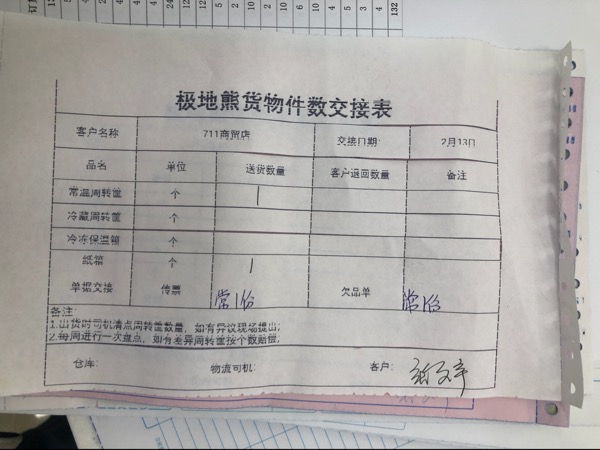 132
极地熊货物件数交接表
客户名称 711商贸店 交接日期: 2月13日
品名 单位 送货数量 客户退回数量 备注
常温周转筐 个 1
冷藏周转筐 个
冷冻保温箱 个
纸箱 个 1
单据交接 传票 常1份 欠品单 常1份
备注:
1.出货时司机清点周转筐数量，如有异议现场提出;
2.每周进行一次盘点，如有差异周转筐按个数赔偿;
仓库: 物流司机: 客户: